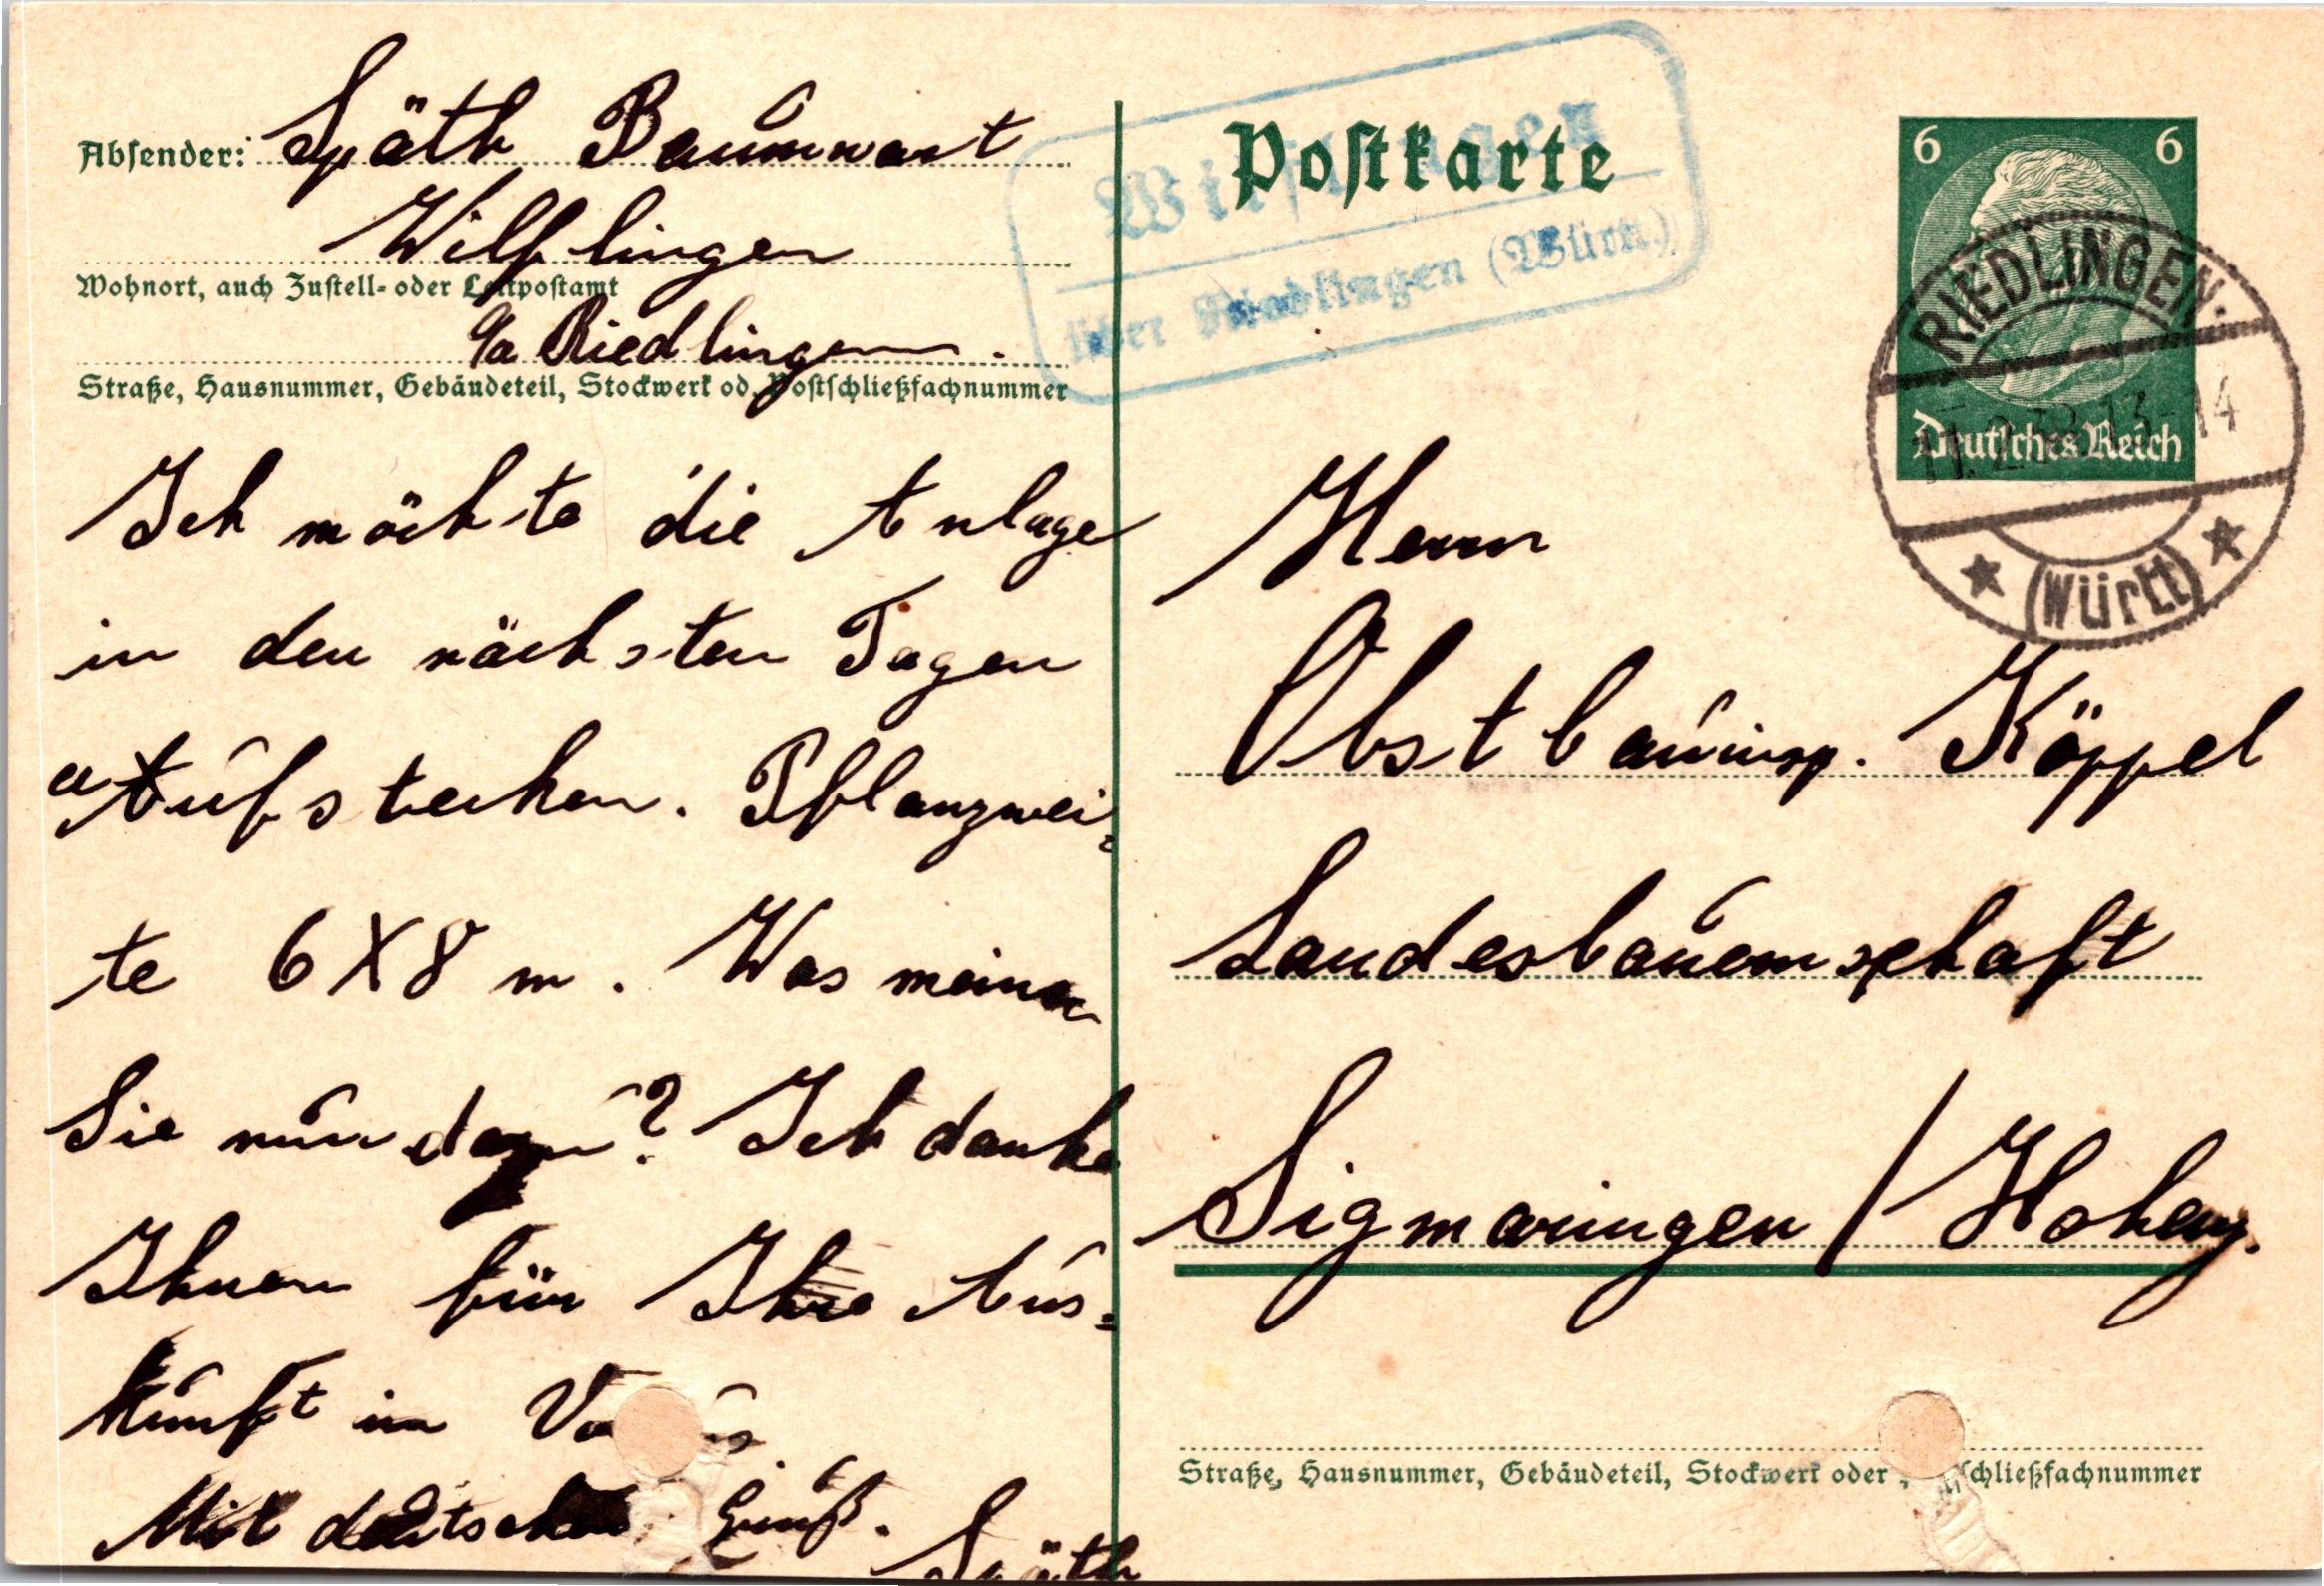 Absender: Späth Baumwart
Wilflingen
Wohnort, auch Zustell- oder Leitpostamt
a/a Riedlingen.
Straße, Hausnummer, Gebäudeteil, Stockwerk od. Postschließfachnummer
Ich möchte die Anlage
in den nächsten Tagen
aufstecken. Pflanzwei-
te 6 X 8 m. Was meinen
Sie nun dazu? Ich danke
Ihnen für Ihre Aus-
kunft im Voraus
Mit deutschem Gruß.
Späth
Postkarte
Wilflingen
über Riedlingen (Württ.)
6 6
Deutsches Reich
RIEDLINGEN.
13-14
(Württ)
Herrn
Obstbauinsp. Köppel
Landesbauernschaft
Sigmaringen / Hohenz.
Straße, Hausnummer, Gebäudeteil, Stockwerk oder Postschließfachnummer